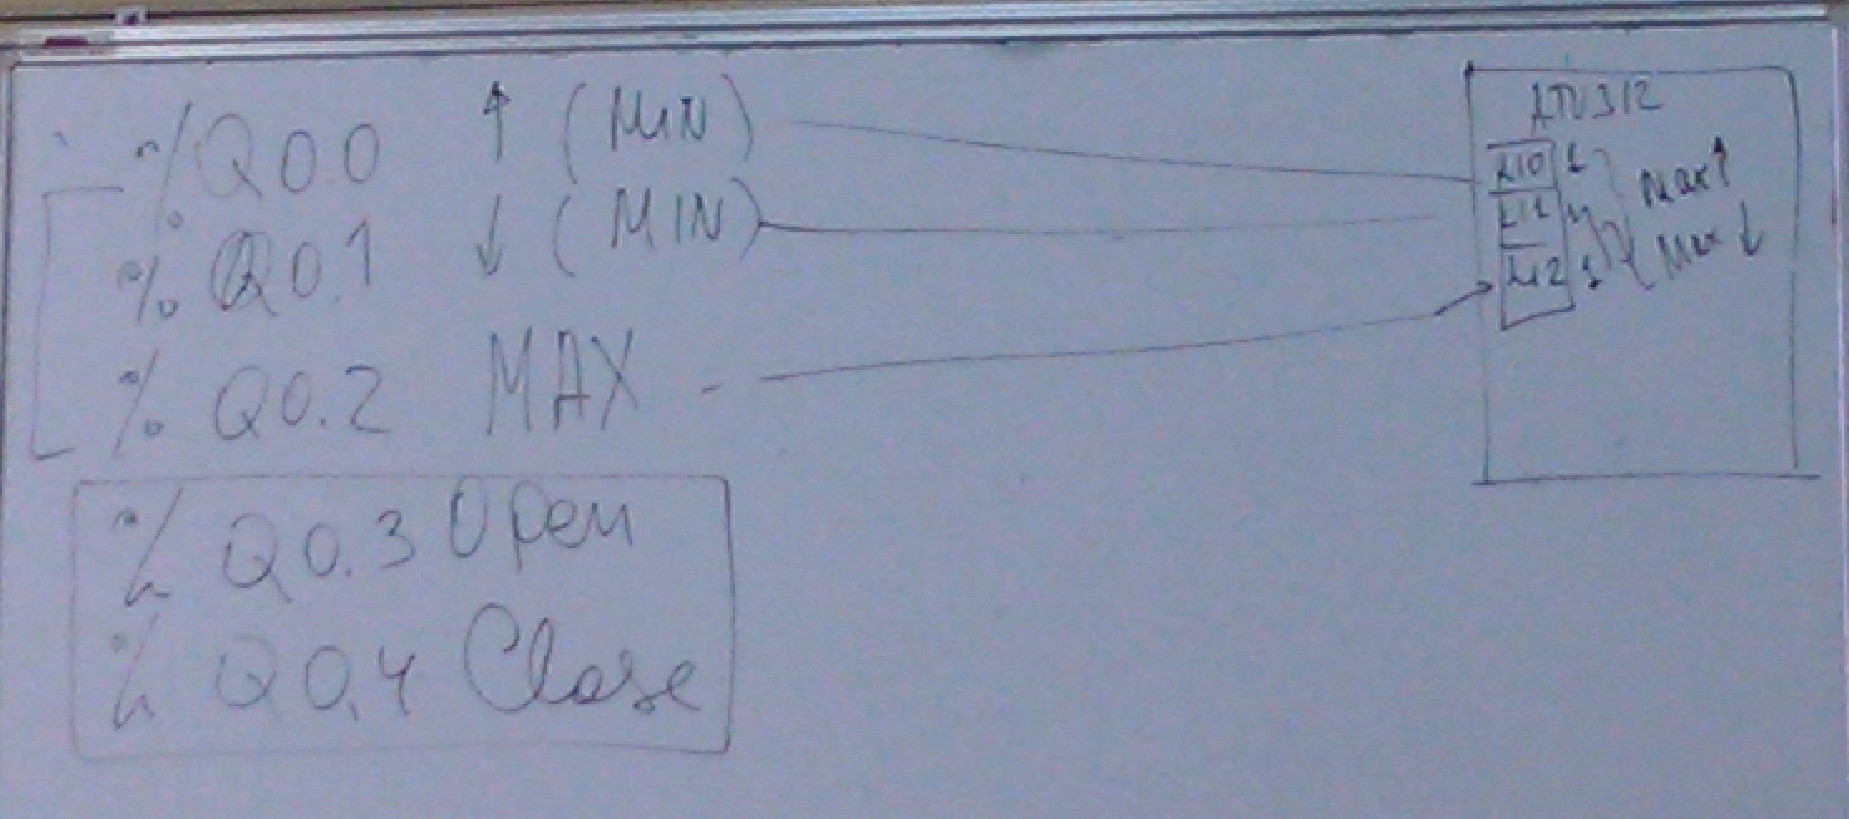 %Q0.0 ↑ (MIN)
%Q0.1 ↓ (MIN)
%Q0.2 MAX -
%Q0.3 Open
%Q0.4 Close
ATV312
LI0
LI1
LI2
Max↑
Max↓